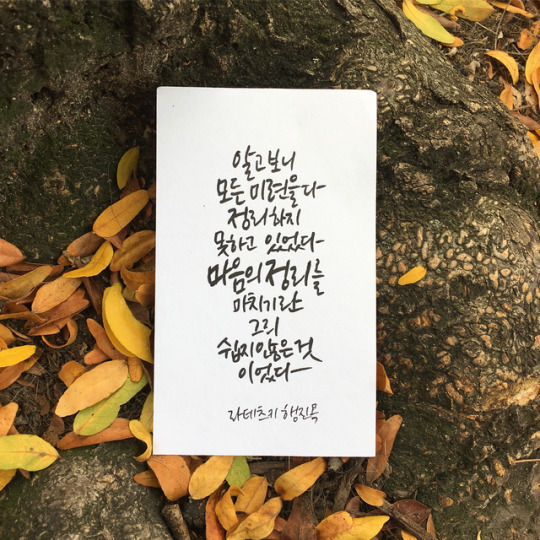 알고보니
모든 미련을 다
정리하지
못하고 있었다
마음의 정리를
마치기란
그리
쉽지않은 것
이었다
라데츠키 행진곡